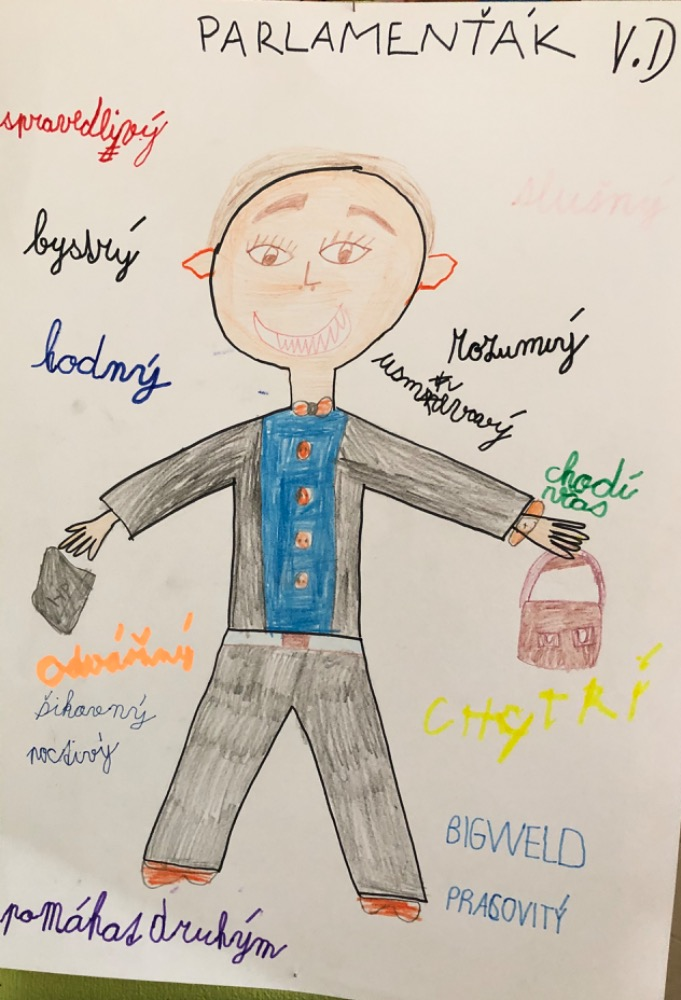 PARLAMENŤÁK V.D
spravedlivý
slušný
bystrý
hodný
rozumný
usměvavý
chodí
včas
HP
odvážný
CHYTRÍ
šikovný
poctivý
BIGWELD
PRACOVITÝ
pomáhat druhým